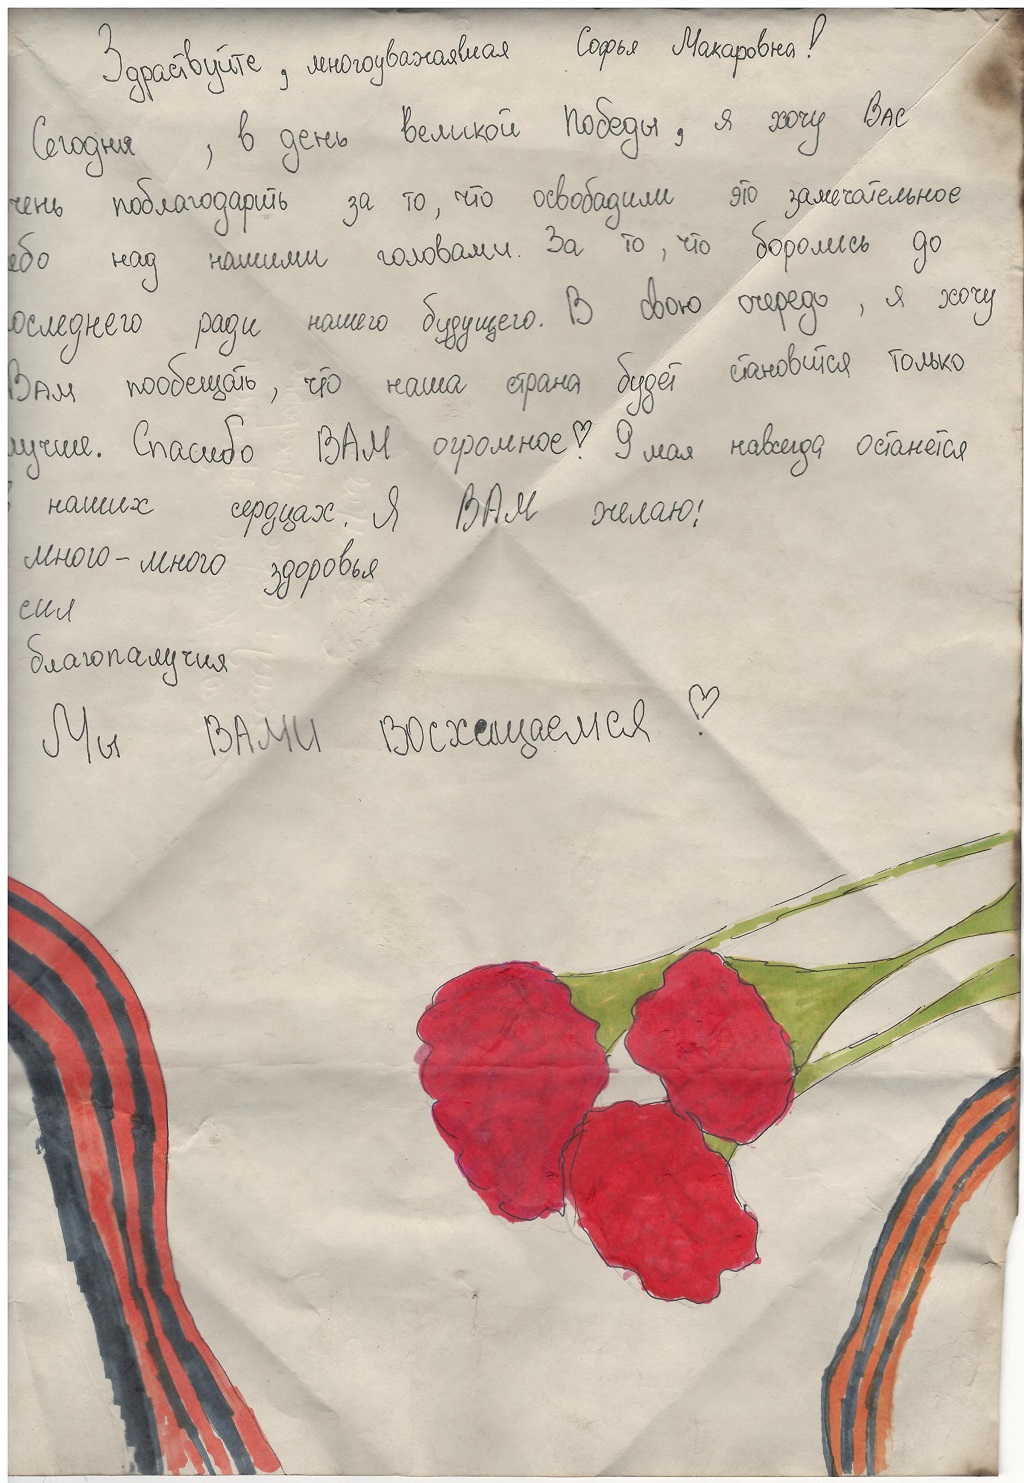 Здраствуйте, многоуважаявмая Софья Макаровна!
Сегодня , в день великой Победы, я хочу ВАС
чень поблагодарить за то, что освободили это замечательное
ебо над нашими головами. За то, что боролись до
оследнего ради нашего будущего. В свою очередь, я хочу
ВАМ пообещать, что наша страна будет становится только
лучше. Спасибо ВАМ огромное! 9 мая навсегда останется
в наших сердцах. Я ВАМ желаю!
много-много здоровья
сил
благопалучия
Мы ВАМИ восхещаемся !